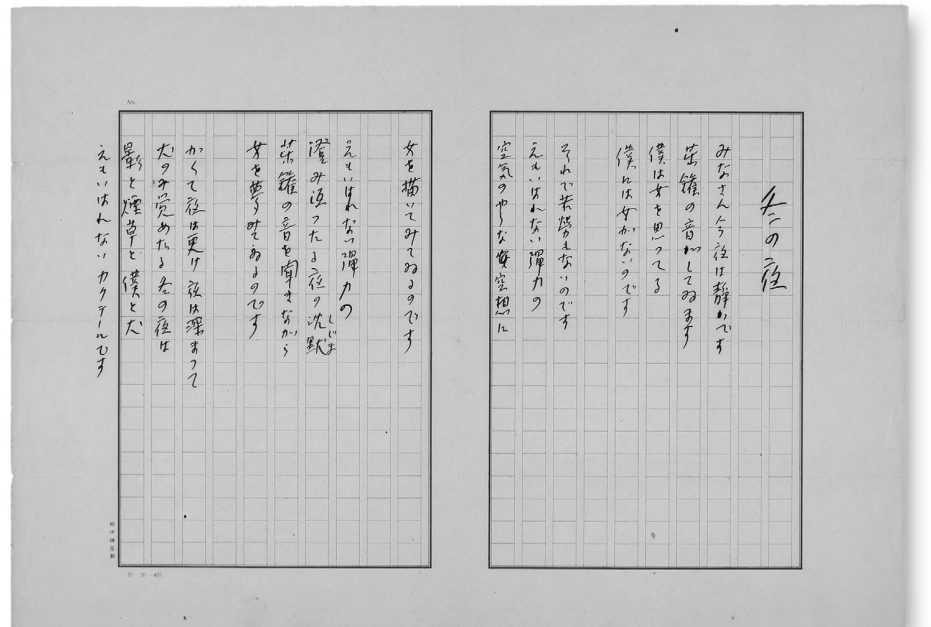 冬の夜
みなさん今夜は静かです
薬鑵の音がしてゐます
僕は女を想つてる
僕には女がないのです
それで苦労もないのです
えもいはれない弾力の
空気のやうな空想に
女を描いてみてゐるのです
えもいはれない弾力の
澄み亙つたる夜の沈黙
しじま
薬鑵の音を聞きながら
女を夢みてゐるのです
かくて夜は更け夜は深まつて
犬のみ覚めたる冬の夜は
影と煙草と僕と犬
えもいはれないカクテールです
No.